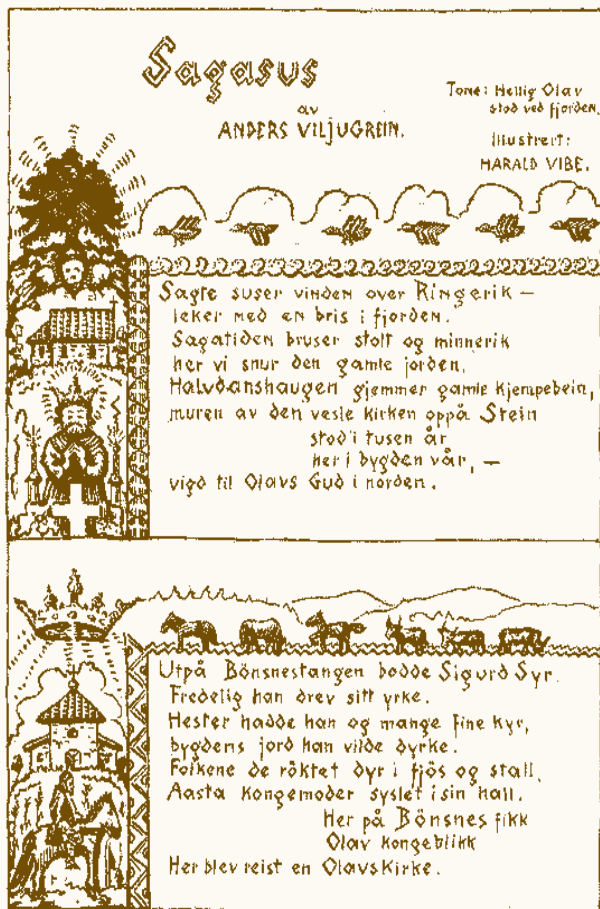 Sagasus
av
ANDERS VILJUGREIN.
Tone: Hellig Olav
stod ved fjorden.
Illustrert:
HARALD VIBE.
Sagte suser vinden over Ringerik —
leker med en bris i fjorden.
Sagatiden bruser stolt og minnerik
her vi snur den gamle jorden.
Halvdanshaugen gjemmer gamle kjempebein,
muren av den vesle kirken oppå Stein
stod i tusen år
her i bygden vår, —
vigd til Olavs Gud i norden.
Utpå Bönsnestangen bodde Sigurd Syr.
Fredelig han drev sitt yrke.
Hester hadde han og mange fine kyr,
bygdens jord han vilde dyrke.
Folkene de röktet dyr i fjös og stall,
Aasta kongemoder syslet i sin hall.
Her på Bönsnes fikk
Olav kongeblikk
Her blev reist en Olavskirke.